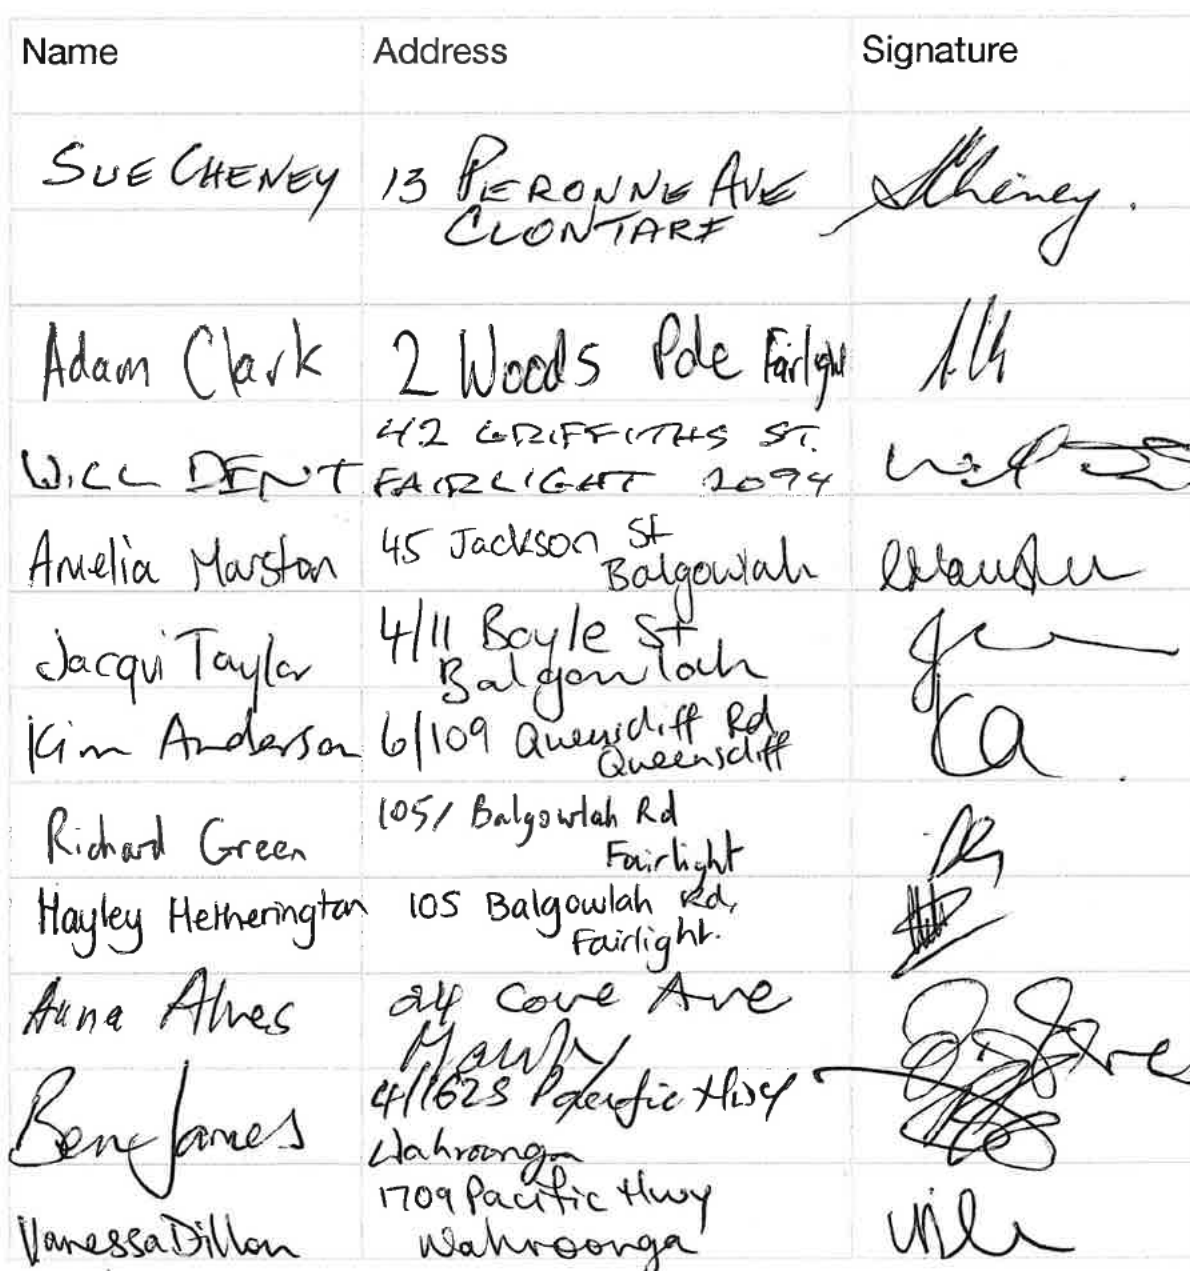 Name Address Signature
SUE CHENEY 13 PERONNE AVE
CLONTARF
Adam Clark 2 Woods Pde Fairlight
42 GRIFFITHS ST.
WILL DENT FAIRLIGHT 2094
Amelia Marston 45 Jackson St
Balgowlah
Jacqui Taylor 4/11 Boyle St
Balgowlah
Kim Anderson 6/109 Queenscliff Rd KA
Queenscliff
Richard Green 105/ Balgowlah Rd
Fairlight
Hayley Hetherington 105 Balgowlah Rd,
Fairlight.
Anna Alves 24 Cove Ave
Manly
Bene James 4/1625 Pacific Hwy
Wahroonga
1709 Pacific Hwy
Vanessa Dillon Wahroonga